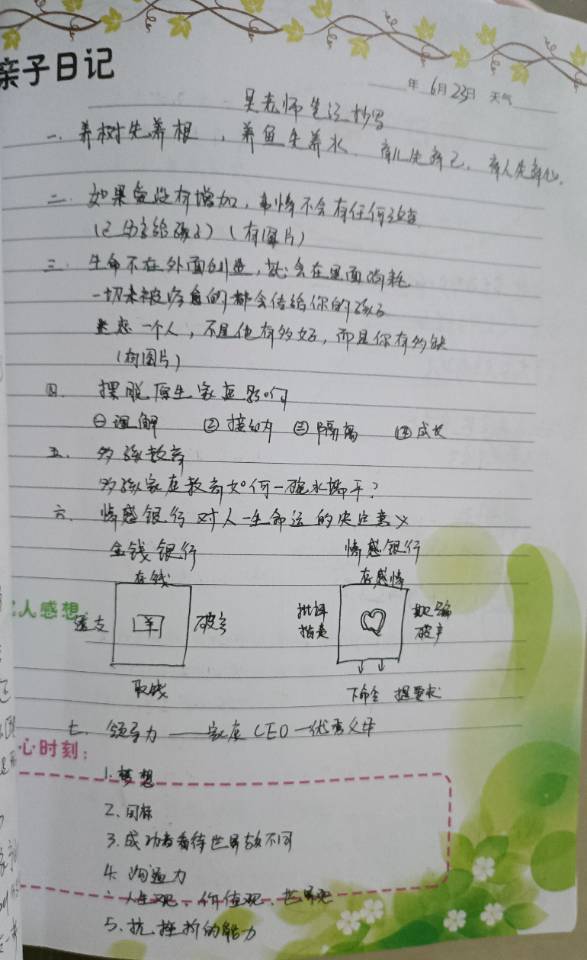 亲子日记
年 6月23日 天气
吴老师笔记抄写
一、养树先养根，养鱼先养水，育儿先育己，育人先育心。
二、如果爱没有增加，事情不会有任何改变
(有图片)
三、生命不在外面创造，就会在里面消耗
一切未被疗愈的都会传给你的孩子
一个人，不是他有多好，而是你有多缺
(有图片)
四、摆脱原生家庭影响
㊀理解 ㊁接纳 ㊂隔离 ㊃成长
五、多孩教育
多孩家庭教育如何一碗水端平？
六、情感银行对人一生命运的决定意义
金钱银行 情感银行
存钱 存感情
人感想
透支 羊 破产 批评 指责 欺骗 破产
取钱 下命令 提要求
七、领导力——家庭CEO—优秀父母
心时刻：
1.梦想
2.目标
3.成功者看待世界故不同
4.沟通力
人生观、价值观、世界观
5.抗挫折的能力